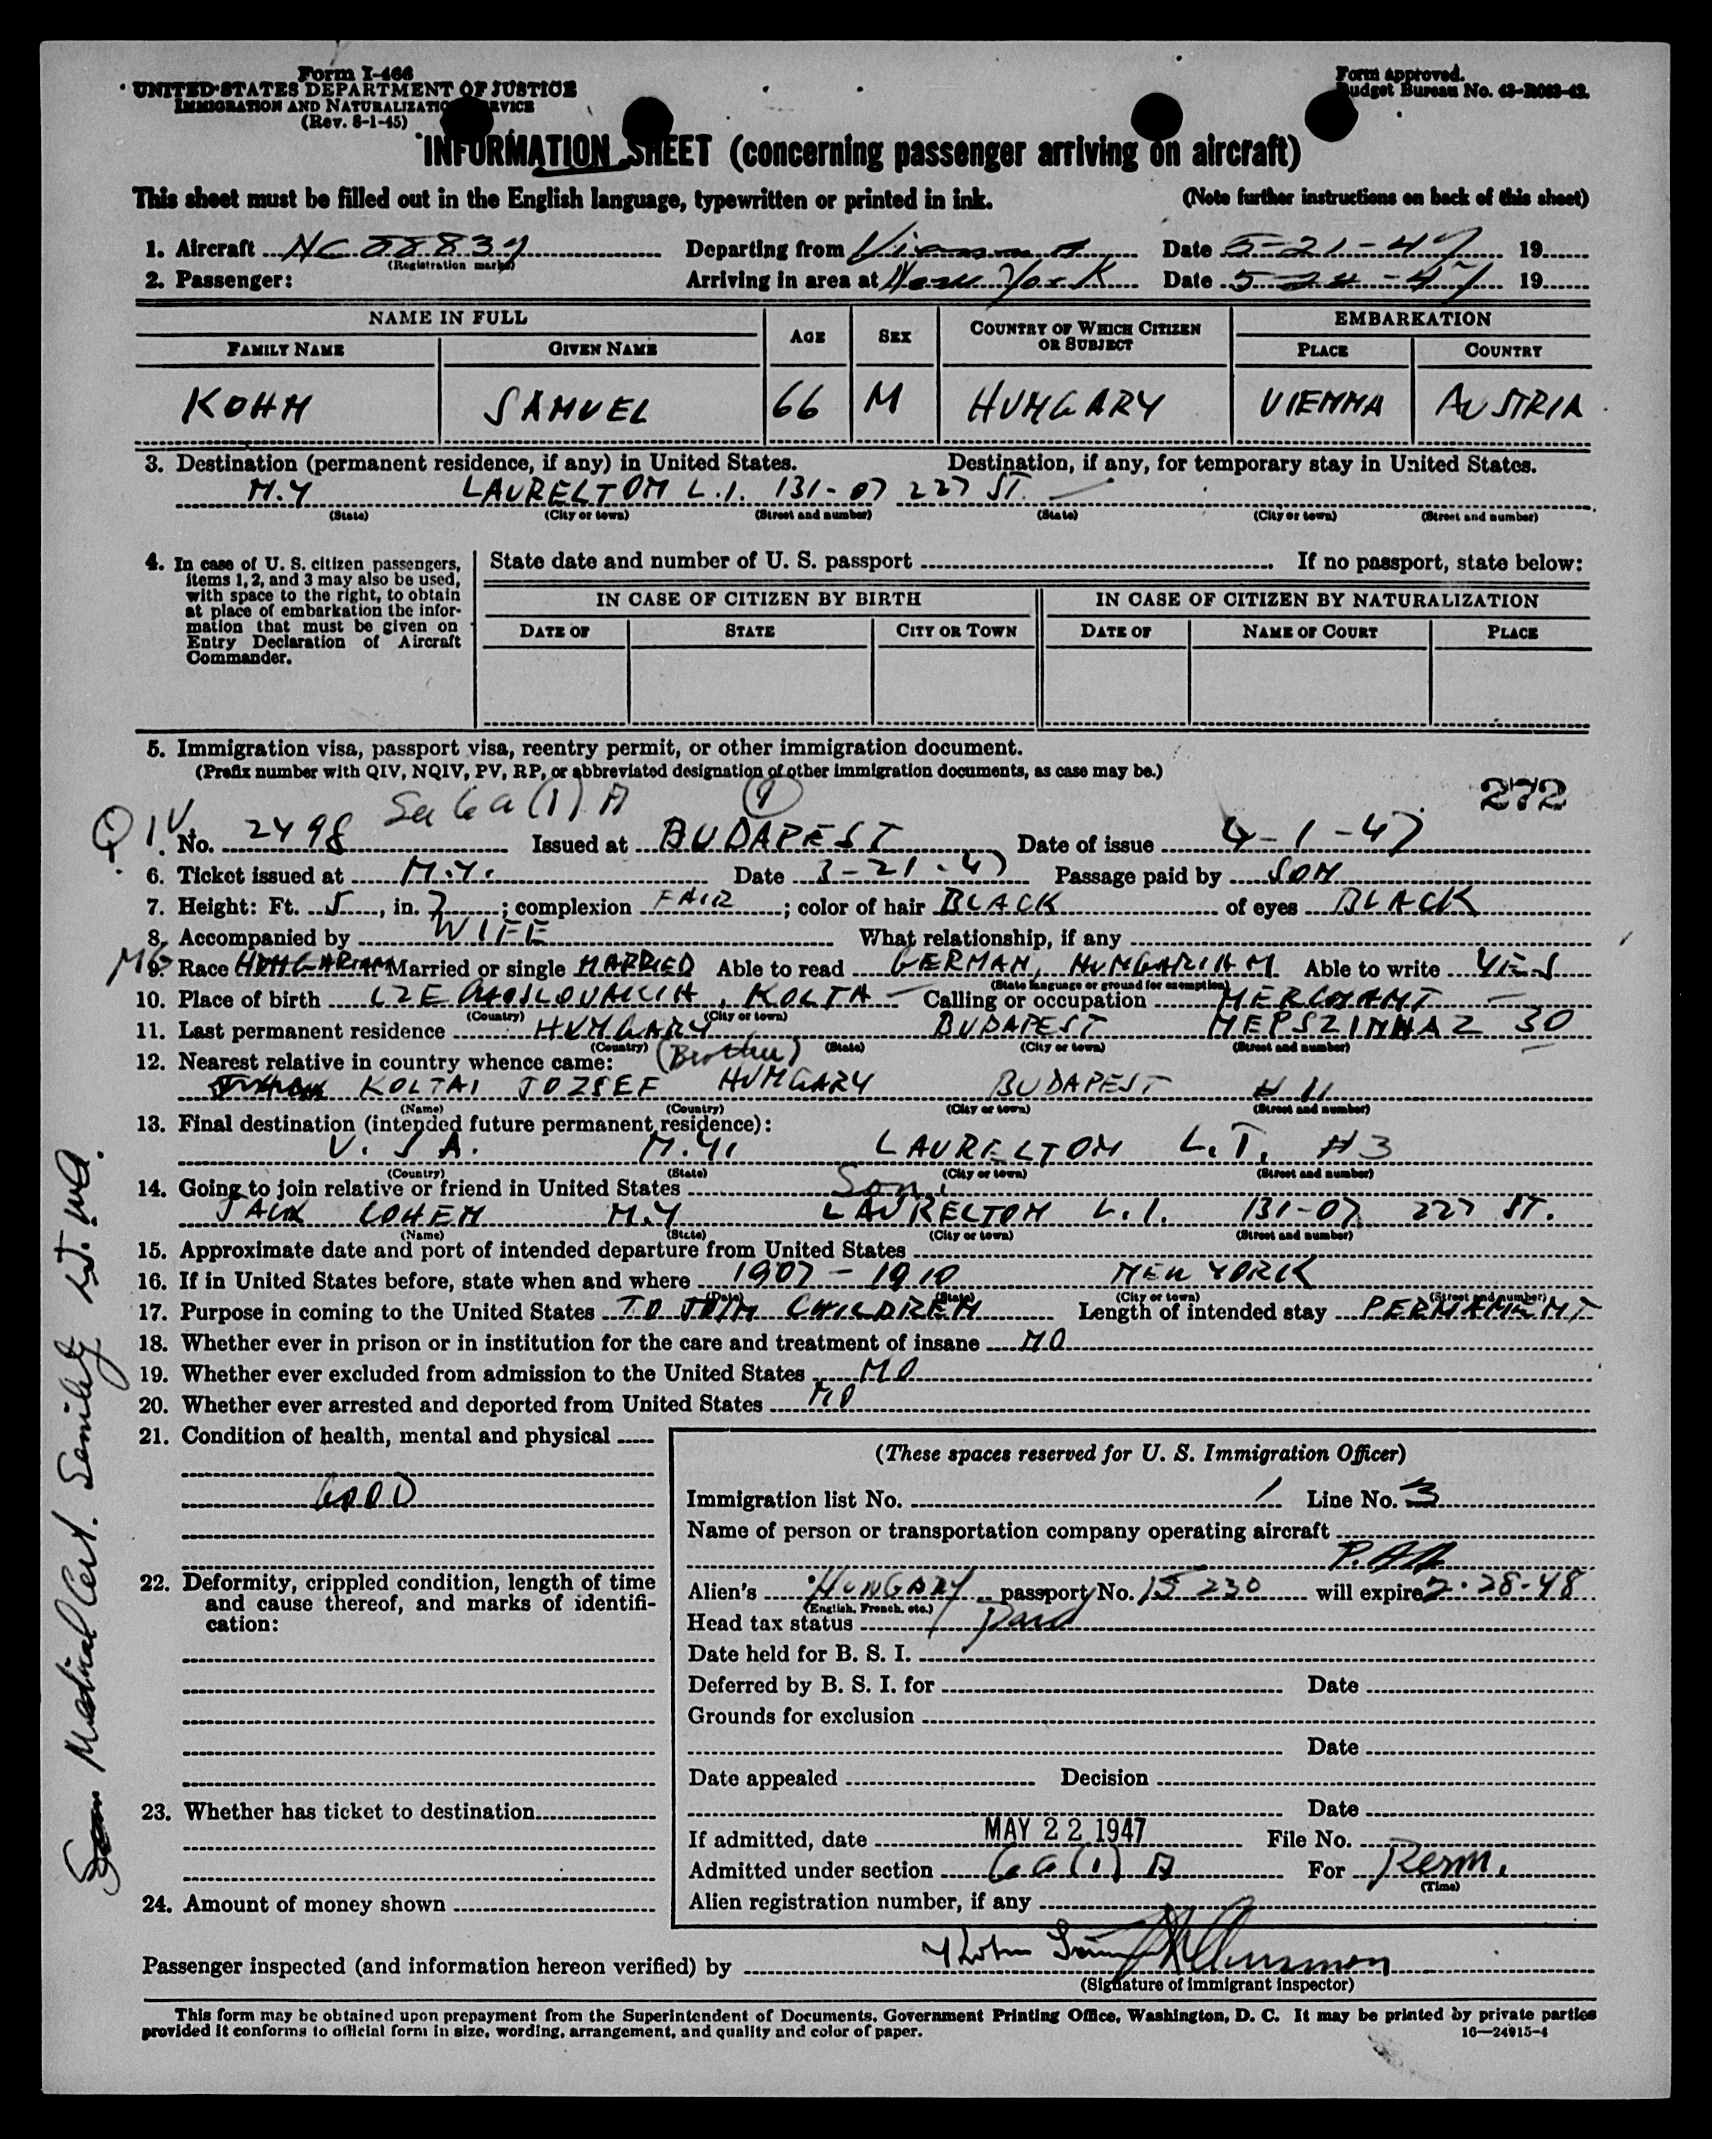 Form I-466
UNITED STATES DEPARTMENT OF JUSTICE
IMMIGRATION AND NATURALIZATION SERVICE
(Rev. 8-1-45)
Form approved.
Budget Bureau No. 43-R063-42.
INFORMATION SHEET (concerning passenger arriving on aircraft)
This sheet must be filled out in the English language, typewritten or printed in ink. (Note further instructions on back of this sheet)
1. Aircraft NC 88837 Departing from Vienna Date 5-21-47 19
(Registration marks)
2. Passenger: Arriving in area at New York Date 5-22-47 19
NAME IN FULL AGE SEX COUNTRY OF WHICH CITIZEN OR SUBJECT EMBARKATION
FAMILY NAME GIVEN NAME PLACE COUNTRY
KOHN SAMUEL 66 M HUNGARY VIENNA AUSTRIA
3. Destination (permanent residence, if any) in United States. Destination, if any, for temporary stay in United States.
N.Y LAURELTON L.I. 131-07 227 ST. —
(State) (City or town) (Street and number) (State) (City or town) (Street and number)
4. In case of U. S. citizen passengers, items 1, 2, and 3 may also be used, with space to the right, to obtain at place of embarkation the information that must be given on Entry Declaration of Aircraft Commander.
State date and number of U. S. passport If no passport, state below:
IN CASE OF CITIZEN BY BIRTH IN CASE OF CITIZEN BY NATURALIZATION
DATE OF STATE CITY OR TOWN DATE OF NAME OF COURT PLACE
5. Immigration visa, passport visa, reentry permit, or other immigration document.
(Prefix number with QIV, NQIV, PV, RP, or abbreviated designation of other immigration documents, as case may be.)
272
Sec 6a(1) A (1)
QIV. No. 2498 Issued at BUDAPEST Date of issue 4-1-47
6. Ticket issued at N.Y. Date 3-21-47 Passage paid by SON
7. Height: Ft. 5, in. 7; complexion FAIR; color of hair BLACK of eyes BLACK
8. Accompanied by WIFE What relationship, if any
9. Race HUNGARIAN Married or single MARRIED Able to read GERMAN, HUNGARIAN Able to write YES
(State language or ground for exemption)
10. Place of birth CZECHOSLOVAKIA, KOLTA — Calling or occupation MERCHANT —
(Country) (City or town)
11. Last permanent residence HUNGARY BUDAPEST NEPSZINHAZ 30
(Country) (State) (City or town) (Street and number)
12. Nearest relative in country whence came: (Brother)
KOLTAI JOZSEF HUNGARY BUDAPEST # 11
(Name) (Country) (City or town) (Street and number)
13. Final destination (intended future permanent residence):
U. S A. N.Y. LAURELTON L.I. #3
(Country) (State) (City or town) (Street and number)
14. Going to join relative or friend in United States Son,
JACK COHEN N.Y LAURELTON L.I. 131-07 227 ST.
(Name) (State) (City or town) (Street and number)
15. Approximate date and port of intended departure from United States
16. If in United States before, state when and where 1907 - 1910 NEW YORK
(Date) (State) (City or town) (Street and number)
17. Purpose in coming to the United States TO JOIN CHILDREN Length of intended stay PERMANENT
18. Whether ever in prison or in institution for the care and treatment of insane NO
19. Whether ever excluded from admission to the United States NO
20. Whether ever arrested and deported from United States NO
21. Condition of health, mental and physical
GOOD
22. Deformity, crippled condition, length of time and cause thereof, and marks of identification:
23. Whether has ticket to destination
24. Amount of money shown
(These spaces reserved for U. S. Immigration Officer)
Immigration list No. 1 Line No. 3
Name of person or transportation company operating aircraft
P.AA
Alien's HUNGARY passport No. 15 230 will expire 2-28-48
(English, French, etc.)
Head tax status Paid
Date held for B. S. I.
Deferred by B. S. I. for Date
Grounds for exclusion
Date
Date appealed Decision
Date
If admitted, date MAY 22 1947 File No.
Admitted under section 6a(1) A For Perm.
(Time)
Alien registration number, if any
Passenger inspected (and information hereon verified) by
(Signature of immigrant inspector)
This form may be obtained upon prepayment from the Superintendent of Documents, Government Printing Office, Washington, D. C. It may be printed by private parties
provided it conforms to official form in size, wording, arrangement, and quality and color of paper. 16—24915-4
Medical Cert. Senility